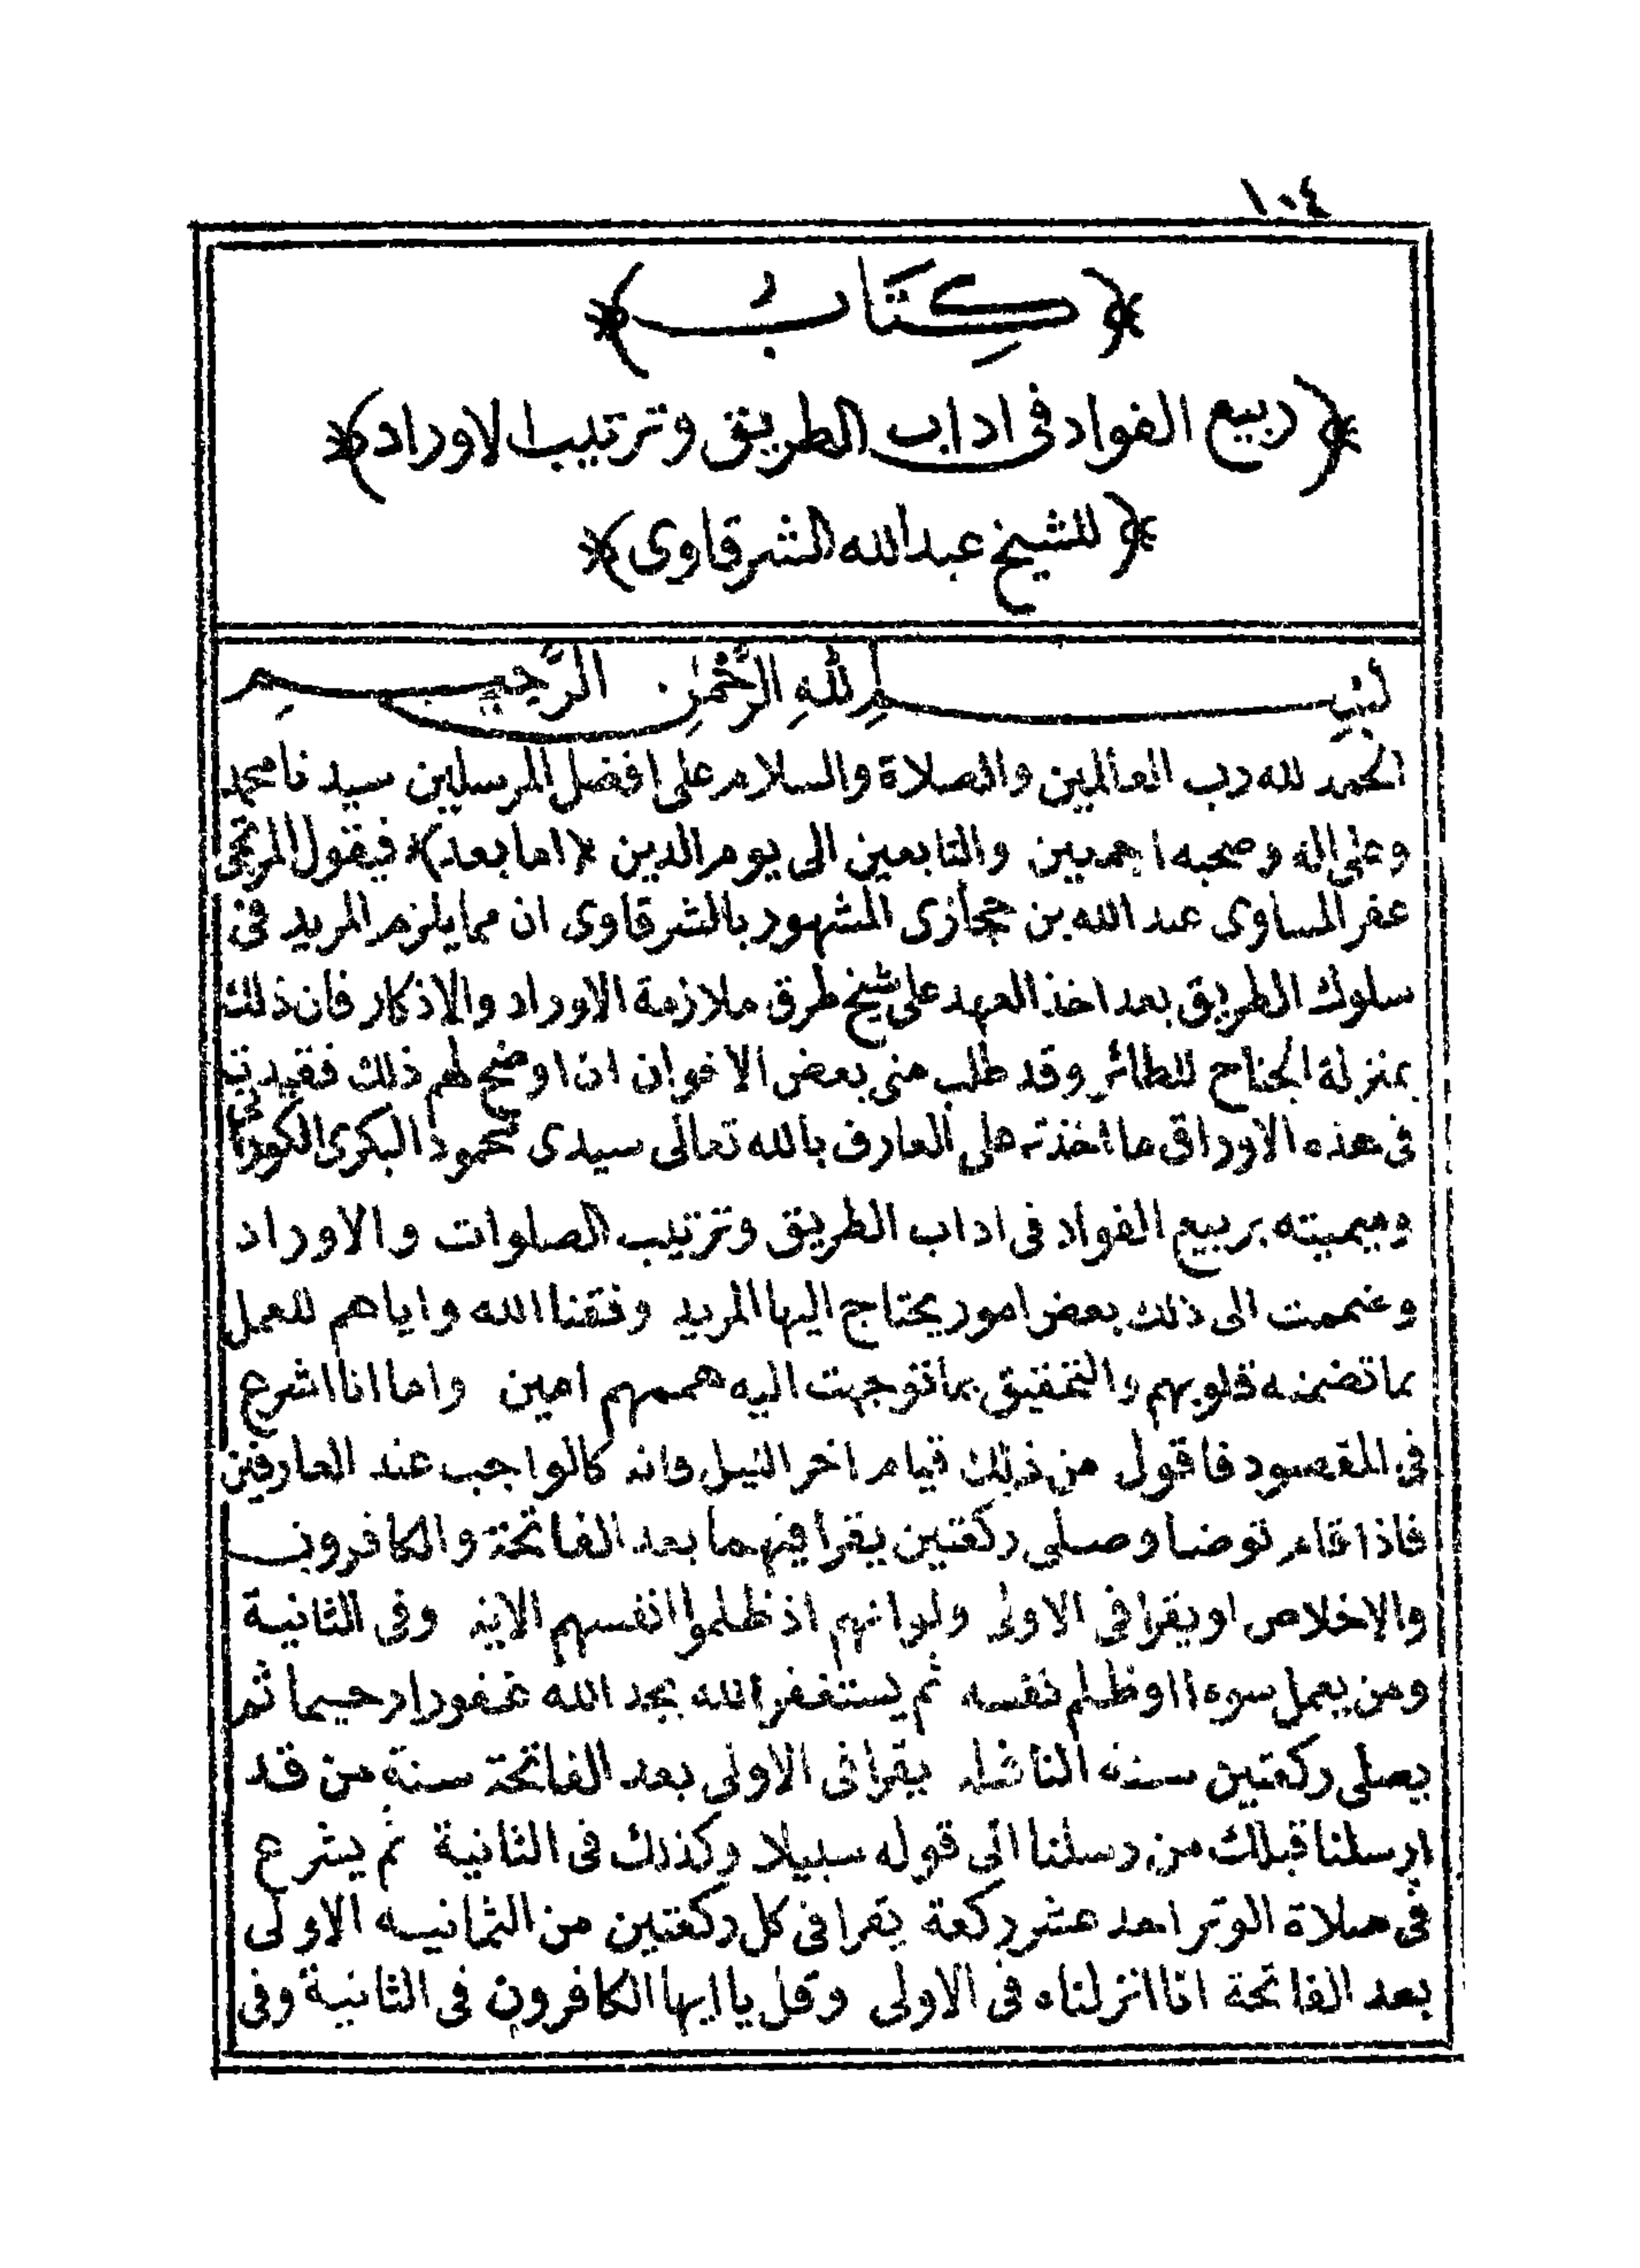 ١٠٤
﴿ كِتَابُ ﴾
﴿ ربيع الفواد فى اداب الطريق وترتيب الاوراد ﴾
﴿ للشيخ عبد الله الشرقاوى ﴾
بسم الله الرحمن الرحيم
الحمد لله رب العالمين والصلاة والسلام على افضل المرسلين سيدنا محمد
وعلى اله وصحبه اجمعين والتابعين الى يوم الدين ﴿اما بعد﴾ فيقول المرتجى
غفر المساوى عبد الله بن حجازى المشهور بالشرقاوى ان مما يلزم المريد فى
سلوك الطريق بعد اخذ العهد على شيخ طرق ملازمة الاوراد والاذكار فان ذلك
بمنزلة الجناح للطائر وقد طلب منى بعض الاخوان ان اوضح لهم ذلك فقيدت
فى هذه الاوراق ما اخذته على العارف بالله تعالى سيدى محمود البكرى الكورانى
وسميته بربيع الفواد فى اداب الطريق وترتيب الصلوات والاوراد
وضممت الى ذلك بعض امور يحتاج اليها المريد وفقنا الله واياهم للعمل
بما تضمنه قلوبهم والتحقيق بما توجهت اليه هممهم امين واما انا اشرع
فى المقصود فاقول من ذلك قيام اخر الليل فانه كالواجب عند العارفين
فاذا قام توضا وصلى ركعتين يقرا فيهما بعد الفاتحة والكافرون
والاخلاص او يقرا فى الاولى ولو انهم اذ ظلموا انفسهم الايه وفى الثانية
ومن يعمل سوءا او ظلم نفسه ثم يستغفر الله يجد الله غفورا رحيما ثم
يصلى ركعتين سنة الناشئه يقرا فى الاولى بعد الفاتحة سنة من قد
ارسلنا قبلك من رسلنا الى قوله سبيلا وكذلك فى الثانية ثم يشرع
فى صلاة الوتر احد عشر ركعة يقرا فى كل ركعتين من الثمانيه الاولى
بعد الفاتحة انا انزلناه فى الاولى وقل يا ايها الكافرون فى الثانية وفى